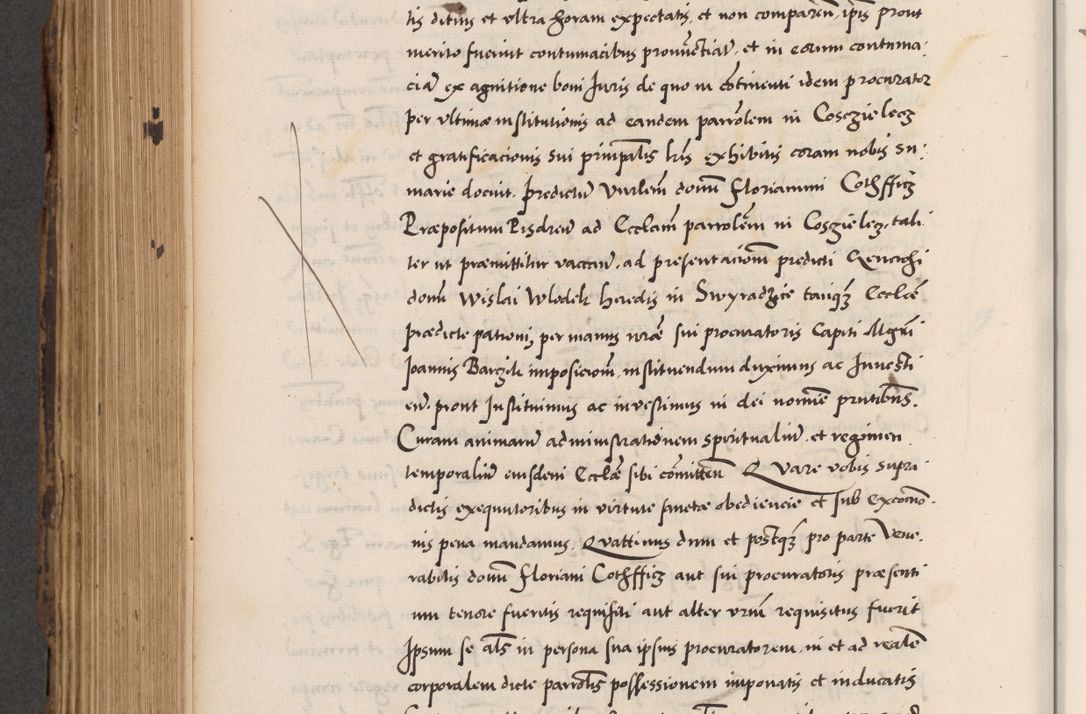 tis dictus et ultra horam expectatis, et non comparen, ipis prout
merito fuerint contumacibus pronuctiat, et in eorum contuma:
cia ex agnitione boni Iuris de quo in cotinenti idem procurator
per ultimae institutionis ad eandem parrolem in Cosczielecz
et gratificacionis sui prinpalis lris exhibitis coram nobis su:
marie docuit. Predictu Vnrlem domi Florianum Cothfficz
Praepositum Pisdren ad Ecclam parrolem in Cosczielecz, tali
ter ut praemittitur vaccan, ad presentaciom predicti Generosi
domi Wislai Wlodek heredis in Swyradzice tanqz Ecclae
praedicte patroni, per manus vrae sui procuratoris Capiti Mgri
Ioannis Barczik imposiciom, instituendum duximus ac Inuesti
en, prout Instituimus ac investimus in dei nomie pntibus.
Curam animaru administrationem spiritualiu, et regimen
temporaliu eiusdem Ecclae sibi comitten Quare vobis supra
dictis exequutoribus in virtute sanctae obediencie et sub excoico
nis pena mandamus. Quattinus dum et postqz pro parte Vene.
rabilis domi Floriani Cothfficz aut sui procuratoris praesenti
um tenore fueritis requisiti aut alter vrum requisitus fuerit
Ipsum se als in persona sua ipsius procuratorem, in et ad realem
corporalem dicte parrolis possessionem imponatis et inducatis